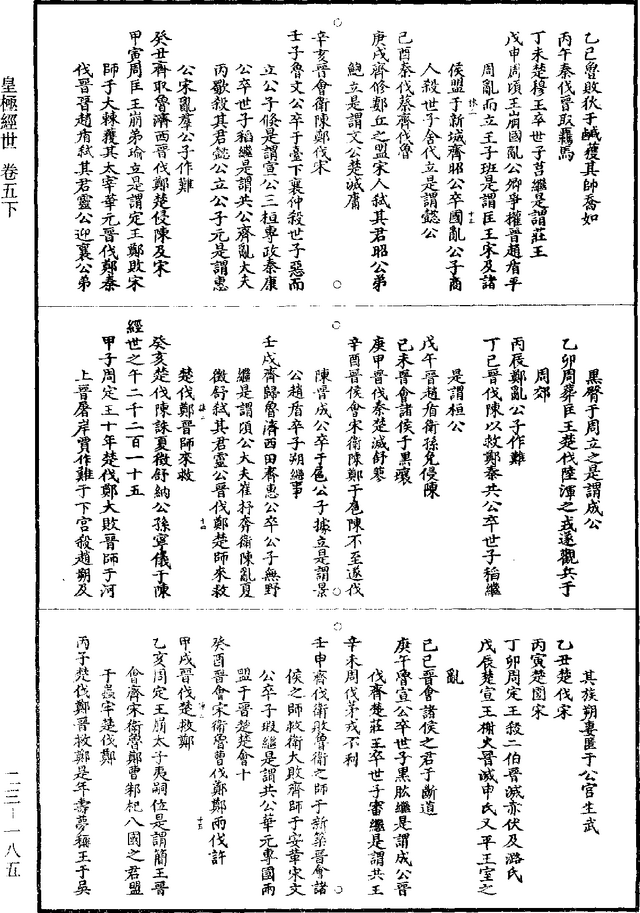 皇極經世 卷五下
乙巳魯敗狄于鹹獲其師喬如
丙午秦伐晉取羈馬
丁未楚穆王卒世子莒繼是謂莊王
戊申周頃王崩國亂公卿爭權晉趙盾平
周亂而立王子班是謂匡王宋及諸
侯盟于新城齊昭公卒國亂公子商
人殺世子舍代立是謂懿公
己酉秦伐蔡齊伐魯
庚戌齊修郪丘之盟宋人弒其君昭公弟
鮑立是謂文公楚滅庸
辛亥晉會衛陳鄭伐宋
壬子魯文公卒于臺下襄仲殺世子惡而
立公子倭是謂宣公三桓專政秦康
公卒世子稻繼是謂共公齊亂大夫
丙歜殺其君懿公立公子元是謂惠
公宋亂羣公子作難
癸丑齊取魯濟西晉伐鄭楚侵陳及宋
甲寅周匡王崩弟瑜立是謂定王鄭敗宋
師于大棘獲其太宰華元晉伐鄭秦
伐晉晉趙盾弒其君靈公迎襄公弟
黑臀于周立之是謂成公
乙卯周葬匡王楚伐陸渾之戎遂觀兵于
周郊
丙辰鄭亂公子作難
丁巳晉伐陳以救鄭秦共公卒世子稻繼
是謂桓公
戊午晉趙盾衛孫免侵陳
己未晉會諸侯于黑壤
庚申晉伐秦楚滅舒蓼
辛酉晉侯會宋衛陳鄭于扈陳不至遂伐
陳晉成公卒于扈公子據立是謂景
公趙盾卒子朔繼事
壬戌齊歸魯濟西田齊惠公卒公子無野
繼是謂頃公大夫崔杼奔衛陳亂夏
徵舒弒其君靈公晉伐鄭楚師來救
楚伐鄭晉師來救
癸亥楚伐陳誅夏徵舒納公孫寧儀于陳
經世之午二千二百一十五
甲子周定王十年楚伐鄭大敗晉師于河
上晉屠岸賈作難于下宮殺趙朔及
其族朔妻匿于公宮生武
乙丑楚伐宋
丙寅楚圍宋
丁卯周定王殺二伯晉滅赤伏及潞氏
戊辰楚宣王榭火晉滅申氏又平王室之
亂
己巳晉會諸侯之君于斷道
庚午魯宣公卒世子黑肱繼是謂成公晉
伐齊楚莊王卒世子審繼是謂共王
辛未周伐茅戎不利
壬申齊伐衛敗魯衛之師于新築晉會諸
侯之師救衛大敗齊師于鞌華宋文
公卒子瑕繼是謂共公華元專國兩
盟于晉楚楚會十
癸酉晉會宋衛魯曹伐鄭鄭兩伐許
甲戌晉伐楚救鄭
乙亥周定王崩太子夷嗣位是謂簡王晉
會齊宋衛魯鄭曹邾杞八國之君盟
于蟲牢楚伐鄭
丙子楚伐鄭晉救鄭是年壽夢稱王于吳
一二三－一八五